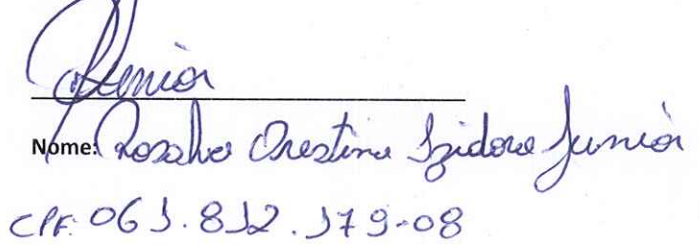 Junior
Nome: Rosalvo Orestino Izidoro Junior
CPF: 061.812.179-08